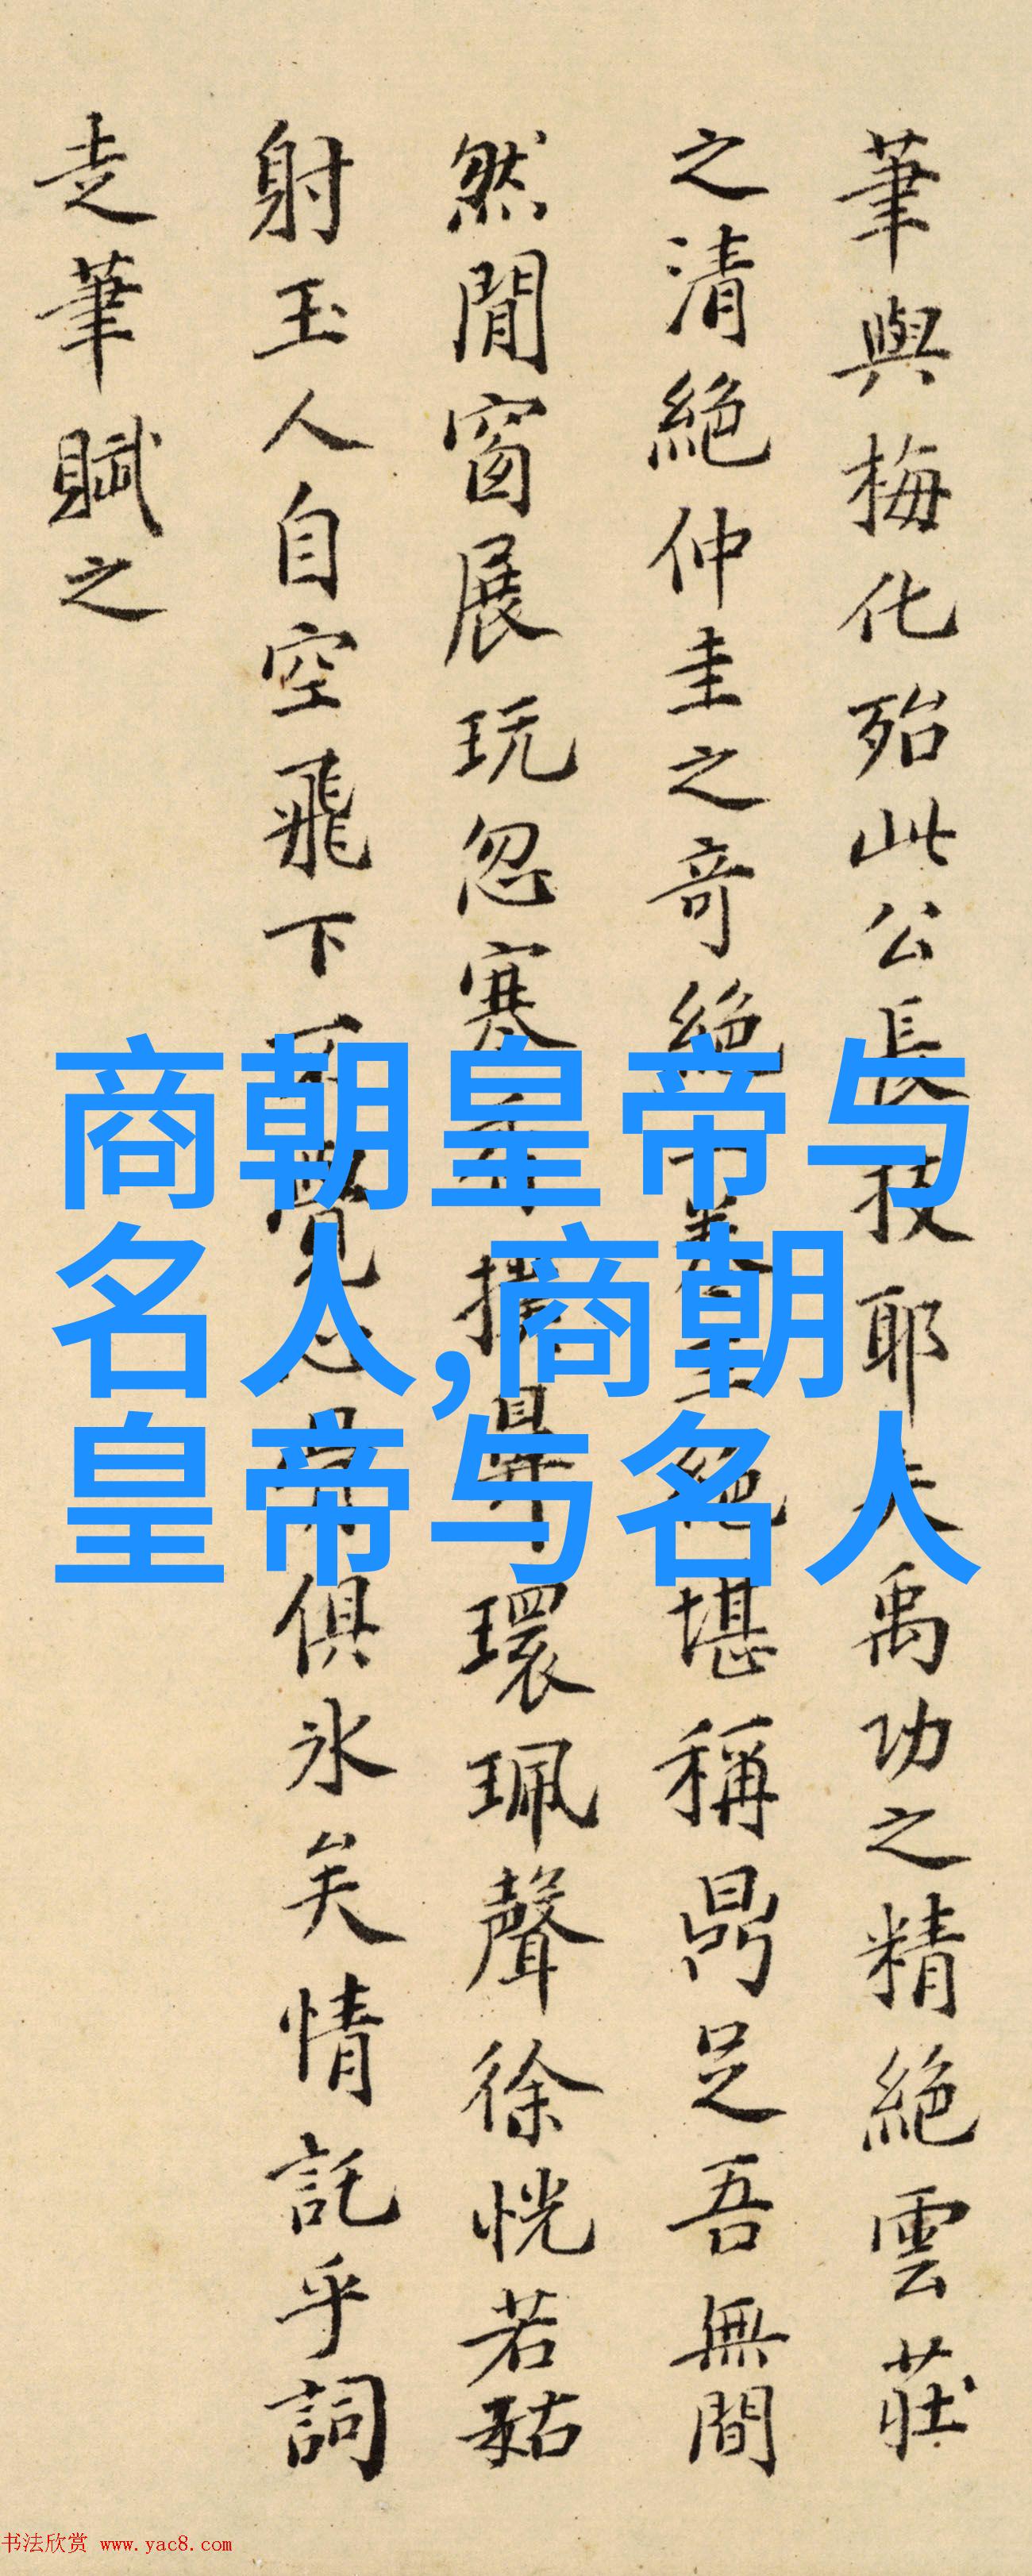 筆與梅化殆此公長技耶夫禹功之精絕雲莊
之清絕仲圭之奇絕奉堪稱鼎足吾無間
然閒窗展玩忽寒環珮聲徐恍若秙
射玉人自空飛下覺俱氷矣情託乎詞
走筆賦之
商朝皇帝与
名人,商朝
皇帝与名人
书法欣赏 www.yac8.com